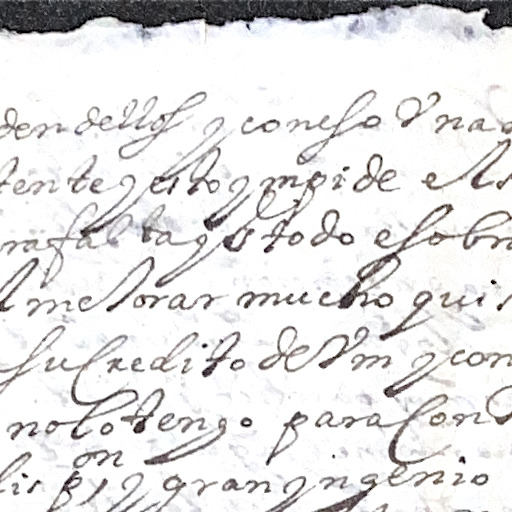 den dellos y con eso Vna
tente y esto ympide el
ra falta y es todo eso bra
mejorar mucho quis
su Credito de Vm y con
no lo tengo para Con
lis pon y gran yngenio